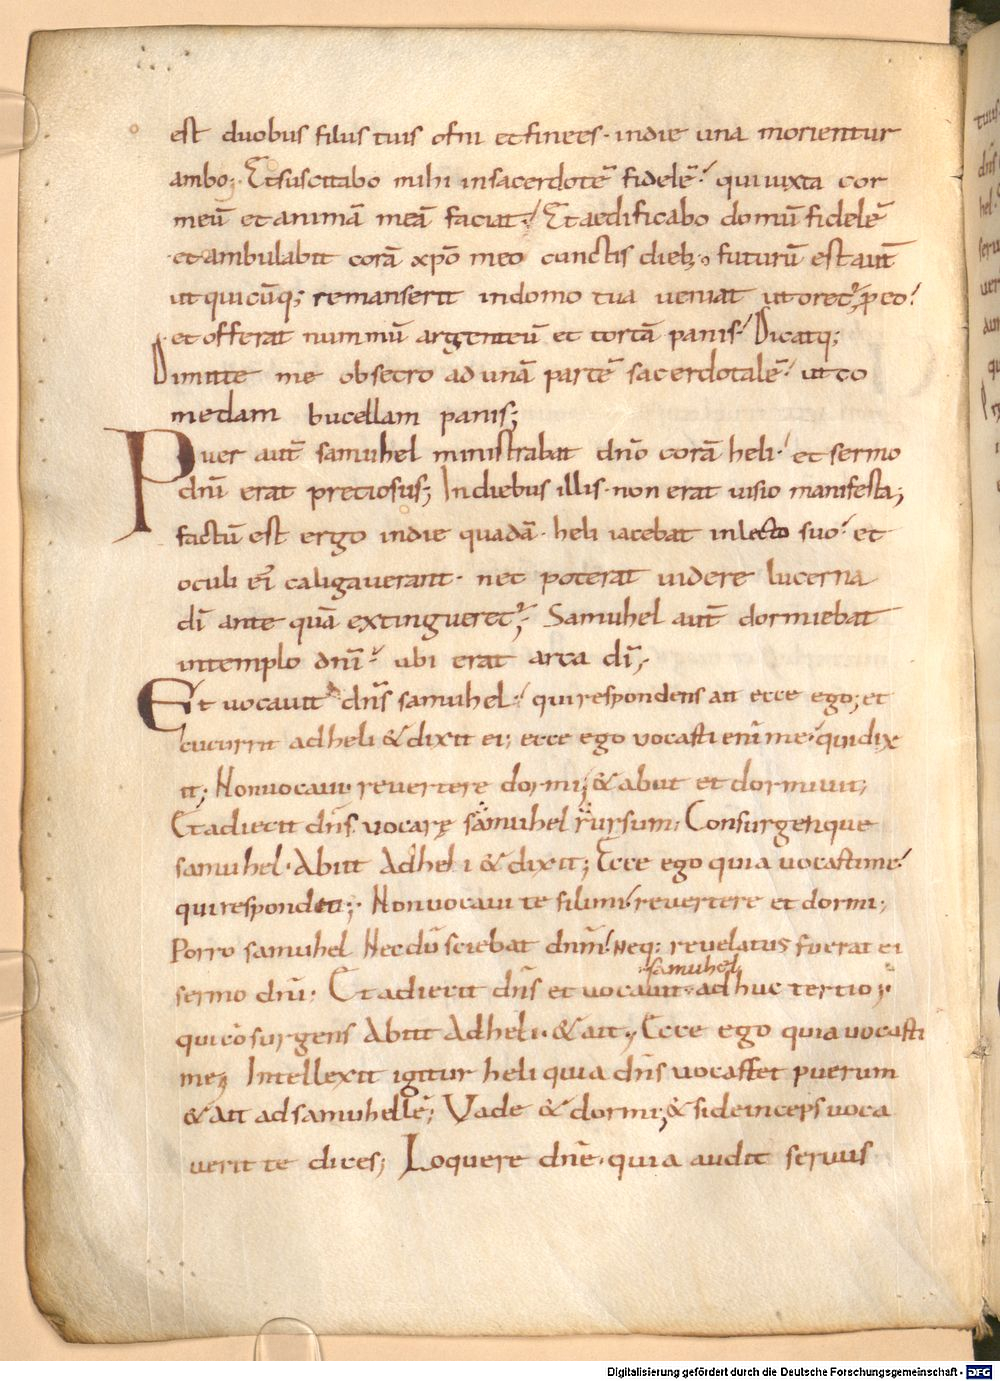 est duobus filiis tuis ofni et finees · in die una morientur
ambo; Et suscitabo mihi in sacerdotē fidelē · qui iuxta cor
meū et animā meā faciat · Et aedificabo domū fidelē
et ambulabit corā xp̄o meo cunctis dieb; · futurū est aut̄
ut quicūq; remanserit in domo tua ueniat ut oret̉ p eo ·
et offerat nummū argenteū et tortā panis · Dicatq;
Dimitte me obsecro ad unā partē sacerdotalē · ut co
medam bucellam panis;
Puer aut̄ samuhel ministrabat dn̄o corā heli · et sermo
dn̄i erat pretiosus; In diebus illis · non erat uisio manifesta;
factū est ergo in die quadā · heli iacebat in lecto suo · et
oculi eī caligauerant · nec poterat uidere lucerna
dī ante quā extingueret̉; Samuhel aut̄ dormiebat
in templo dn̄i · ubi erat arca dī;
Et uocauit dn̄s samuhel · qui respondens ait ecce ego; et
cucurrit ad heli & dixit ei; ecce ego uocasti enī me · qui dix
it; Non uocaui · reuertere dormi; & abiit et dormiuit;
Et adiecit dn̄s uocarę samuhel rursum; Consurgenque
samuhel · Abiit Ad heli & dixit; Ecce ego quia uocasti me ·
qui respondit; Non uocaui te fili mi · reuertere et dormi;
Porro samuhel Necdū sciebat dn̄m · Neq: reuelatus fuerat ei
sermo dn̄i · Et adiecit dn̄s et uocauit · samuhel · ad huc tertio;
qui cōsurgens Abiit Ad heli · & ait; Ecce ego quia uocasti
me; Intellexit igitur heli quia dn̄s uocasset puerum
& ait ad samuhelē; Vade & dormi; & si deinceps uoca
uerit te dices; Loquere dn̄e · quia audit seruus
Digitalisierung gefördert durch die Deutsche Forschungsgemeinschaft - DFG